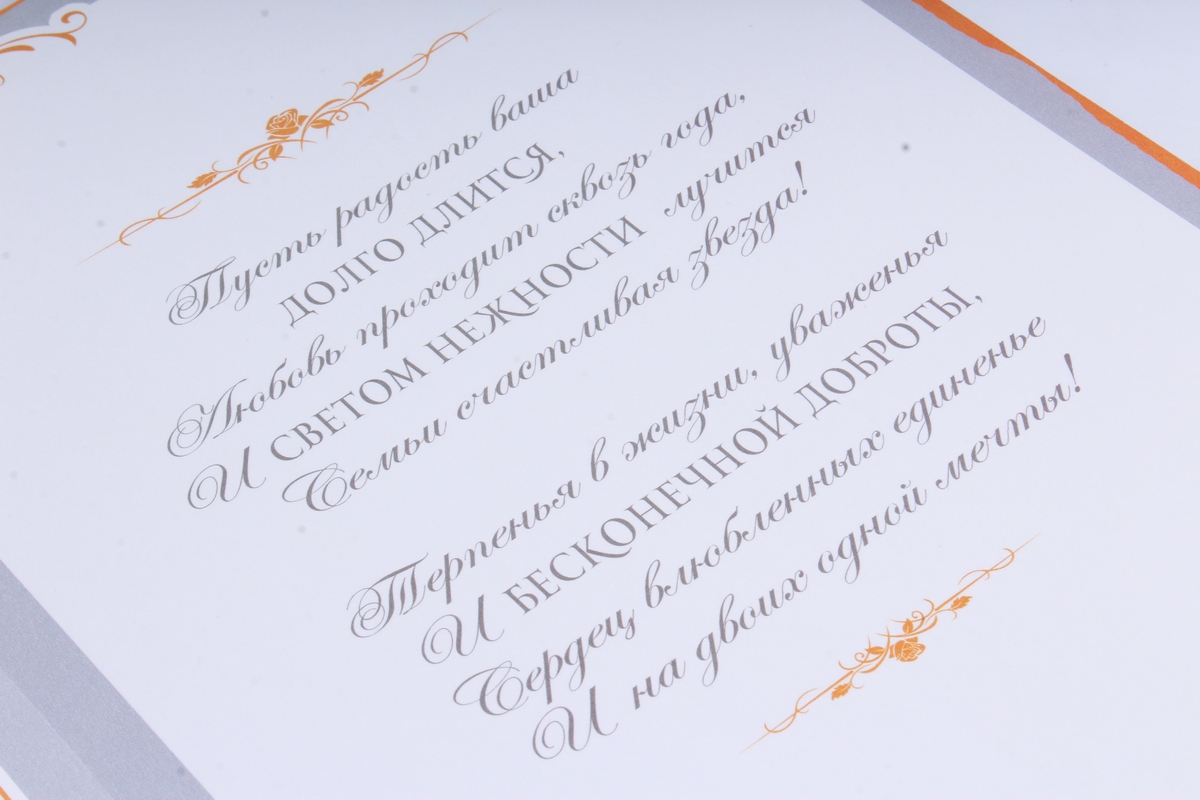 Пусть радость ваша
ДОЛГО ДЛИТСЯ,
Любовь проходит сквозь года,
И СВЕТОМ НЕЖНОСТИ лучится
Семьи счастливая звезда!
Терпенья в жизни, уваженья
И БЕСКОНЕЧНОЙ ДОБРОТЫ,
Сердец влюбленных единенье
И на двоих одной мечты!